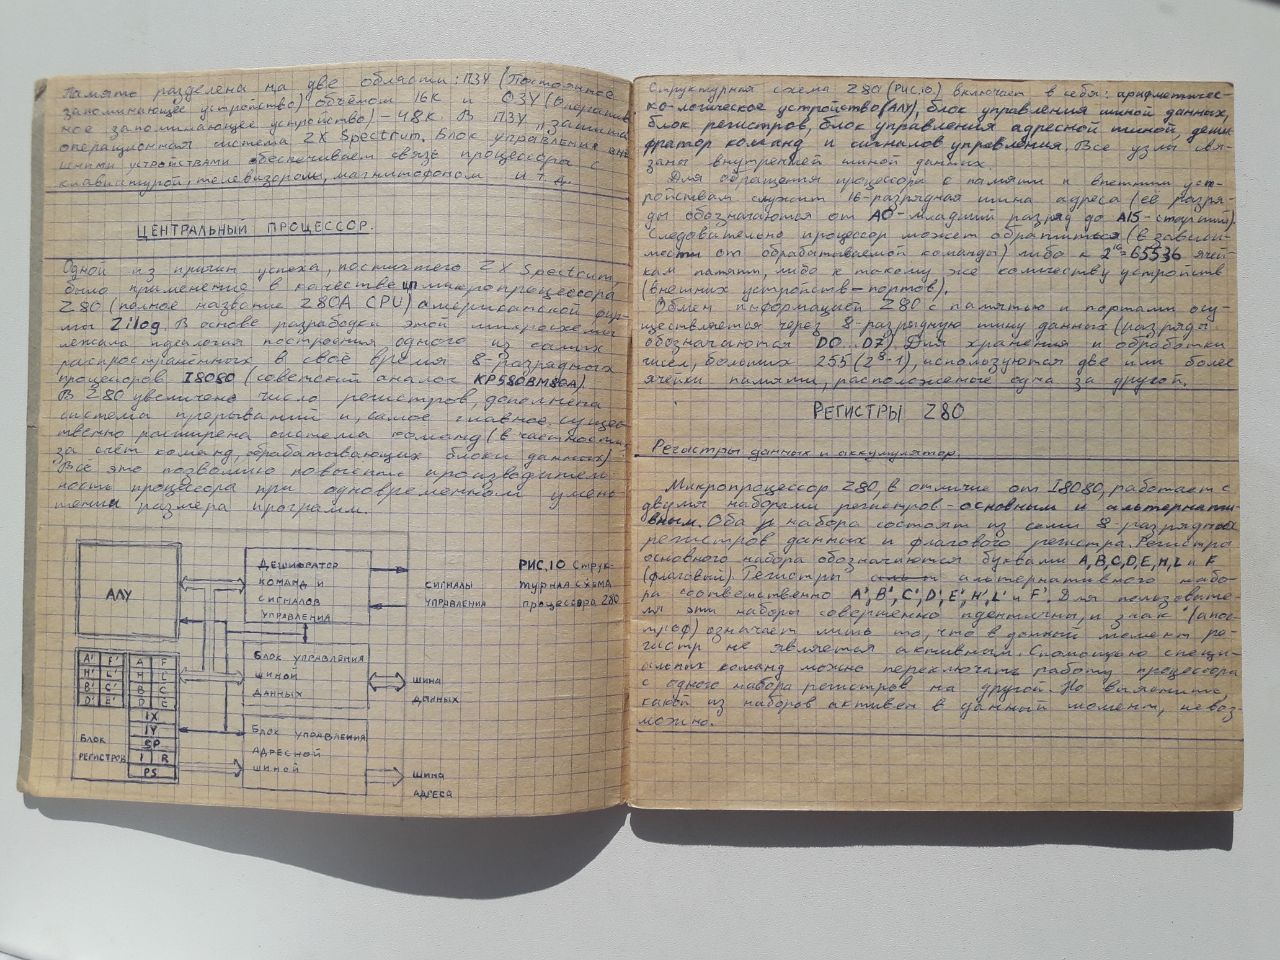 Память разделена на две области: ПЗУ (Постоянное
запоминающее устройство) объёмом 16К и ОЗУ (Оператив
ное запоминающее устройство) – 48К. В ПЗУ
операционная система ZX Spectrum. Блок управления
шними устройствами обеспечивает связь процессора с
клавиатурой, телевизором, магнитофоном и т.д.
ЦЕНТРАЛЬНЫЙ ПРОЦЕССОР.
Одной из причин успеха, постигшего ZX Spectrum,
было применение в качестве ЦП микропроцессора
Z80 (полное название Z80A CPU) американской фир-
мы Zilog. В основе разработки этой микросхемы
лежала идеология построения одного из самых
распространённых в своё время 8-разрядных
процессоров I8080 (советский аналог КР580ВМ80А).
В Z80 увеличено число регистров, дополнена
система прерываний и, самое главное, сущес-
твенно расширена система команд (в частности,
за счёт команд, обрабатывающих блоки данных).
Всё это позволило повысить производитель-
ность процессора при одновременном умень-
шении размера программ.
АЛУ
ДЕШИФРАТОР
КОМАНД И
СИГНАЛОВ
УПРАВЛЕНИЯ
СИГНАЛЫ
УПРАВЛЕНИЯ
РИС.10 Струк-
турная схема
процессора Z80
БЛОК УПРАВЛЕНИЯ
ШИНОЙ
ДАННЫХ
ШИНА
ДАННЫХ
A' F' A F
H' L' H L
B' C' B C
D' E' D E
IX
IY
SP
I R
PS
БЛОК
РЕГИСТРОВ
БЛОК УПРАВЛЕНИЯ
АДРЕСНОЙ
ШИНОЙ
ШИНА
АДРЕСА
Структурная схема Z80 (РИС.10) включает в себя: арифметичес-
ко-логическое устройство (АЛУ), блок управления шиной данных,
блок регистров, блок управления адресной шиной, деши
фратор команд и сигналов управления. Все узлы свя-
заны внутренней шиной данных.
Для обращения процессора с памяти и внешним уст-
ройствам служит 16-разрядная шина адреса (её разря-
ды обозначаются от A0-младший разряд до A15-старший).
Следовательно процессор может обратиться (в зависи-
мости от обрабатываемой команды) либо к 2¹⁶=65536 ячей-
кам памяти, либо к такому же количеству устройств
(внешних устройств-портов).
Обмен информацией Z80 с памятью и портами осу-
ществляется через 8-разрядную шину данных (разряды
обозначаются D0...D7) Для хранения и обработки
чисел, больших 255 (2⁸-1), используются две или более
ячейки памяти, расположеные одна за другой.
РЕГИСТРЫ Z80
Регистры данных и аккумулятор.
Микропроцессор Z80, в отличие от I8080, работает с
двумя наборами регистров – основным и альтернати-
вным. Оба набора состоят из семи 8-разрядных
регистров данных и флагового регистра. Регистры
основного набора обозначаются буквами A,B,C,D,E,H,L и F
(флаговый). Регистры альтернативного набо-
ра соответственно A',B',C',D',E',H',L' и F'. Для пользовате-
ля эти наборы совершенно идентичны, и знак ' (апос-
троф) означает лишь то, что в данный момент ре-
гистр не является активным. С помощью специ-
альных команд можно переключать работу процессора
с одного набора регистров на другой. Но выяснить,
какой из наборов активен в данный момент, невоз
можно.